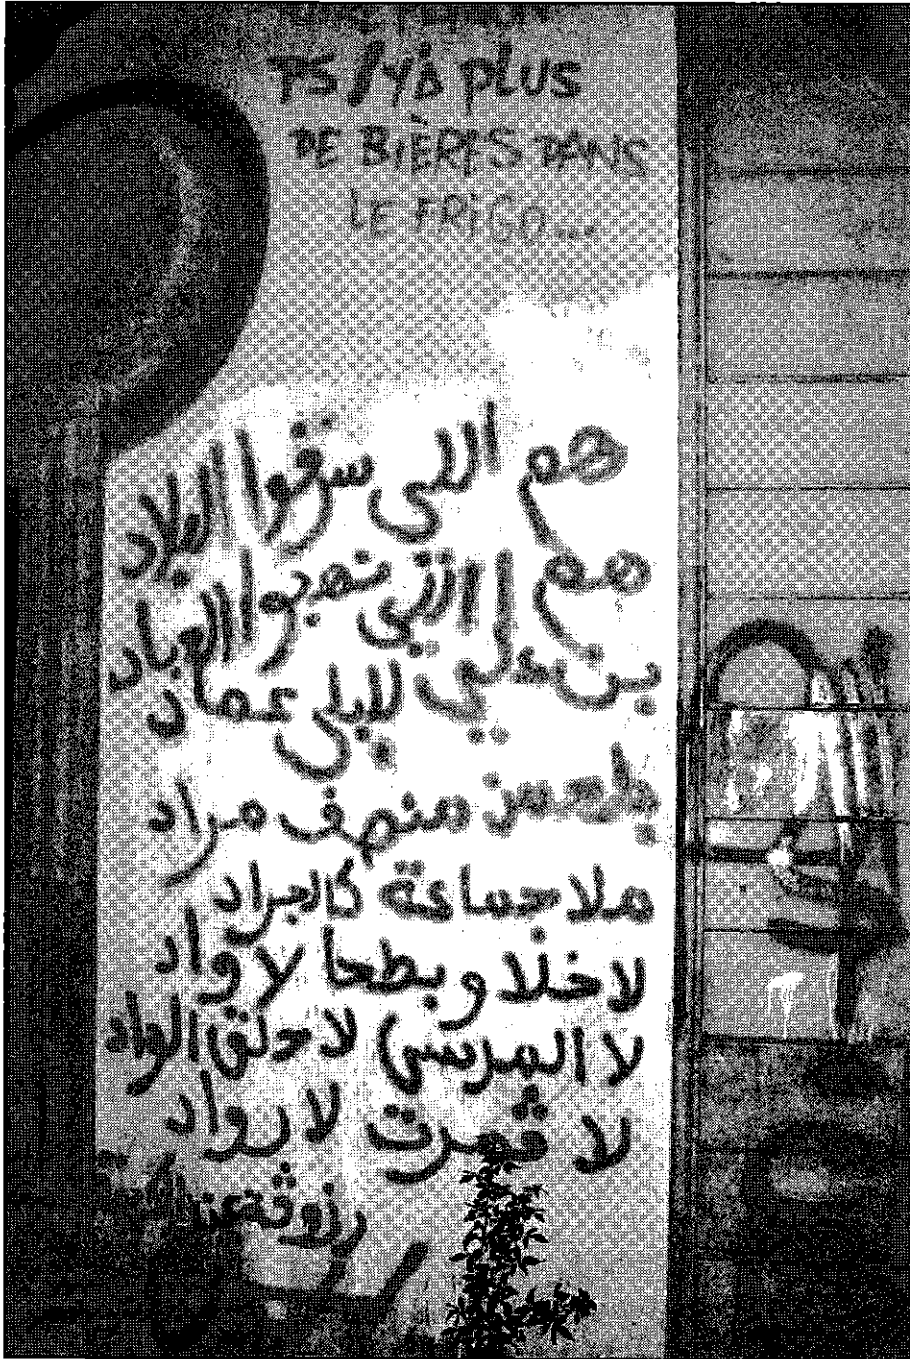 PS / Y'A PLUS
DE BIÈRES DANS
LE FRIGO...
هم اللي سرقوا البلاد
هم اللي نهبوا العباد
بن علي لليلى عماد
بلحسن منصف مراد
ملا جماعة كالجراد
لا خلاو بطحا لا واد
لا المرسى لا حلق الواد
لا ڨمرت لا رواد